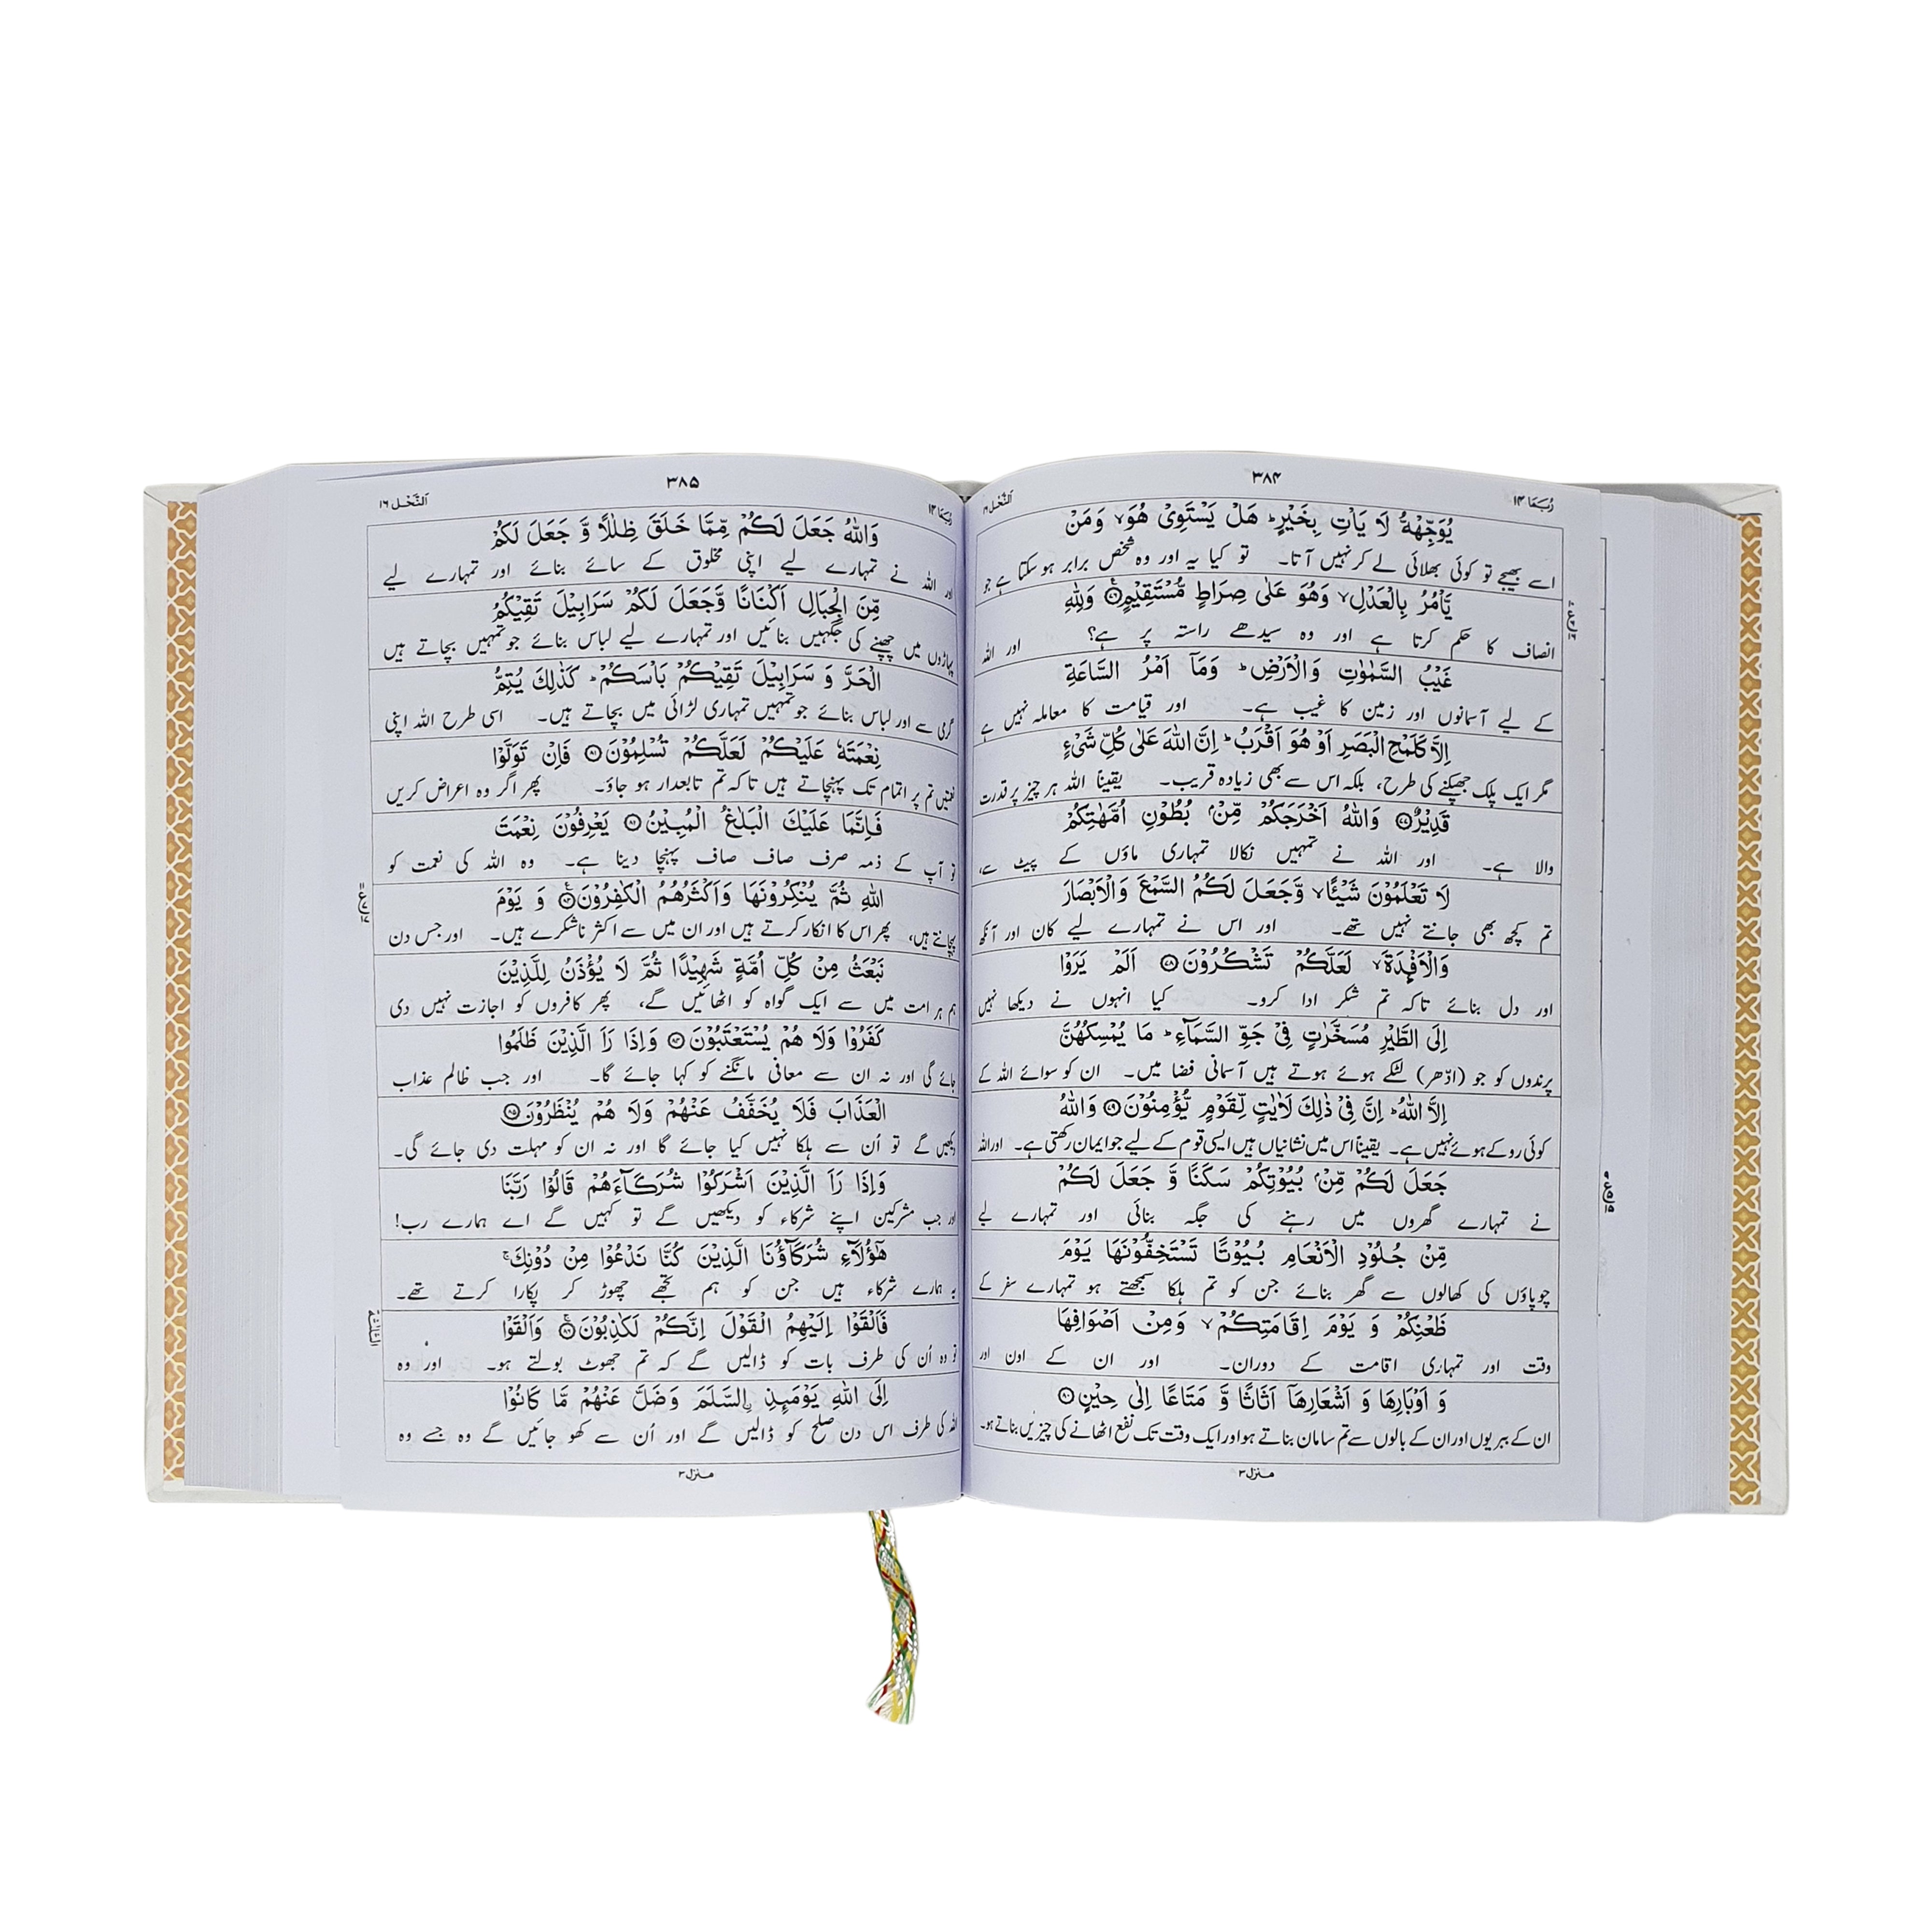 رُبَمَا ۱۴
۳۸۴
اَلنَّحْل ۱۶
يُوَجِّهْهُّ لَا يَاْتِ بِخَيْرٍ ؕ هَلْ يَسْتَوِيْ هُوَ ۙ وَمَنْ
اسے بھیجے تو کوئی بھلائی لے کر نہیں آتا۔ تو کیا یہ اور وہ شخص برابر ہو سکتا ہے جو
يَّاْمُرُ بِالْعَدْلِ ۙ وَهُوَ عَلٰى صِرَاطٍ مُّسْتَقِيْمٍ ۷۶ وَلِلّٰهِ
انصاف کا حکم کرتا ہے اور وہ سیدھے راستہ پر ہے؟ اور اللہ
غَيْبُ السَّمٰوٰتِ وَالْاَرْضِ ؕ وَمَاۤ اَمْرُ السَّاعَةِ
کے لیے آسمانوں اور زمین کا غیب ہے۔ اور قیامت کا معاملہ نہیں ہے
اِلَّا كَلَمْحِ الْبَصَرِ اَوْ هُوَ اَقْرَبُ ؕ اِنَّ اللّٰهَ عَلٰى كُلِّ شَيْءٍ
مگر ایک پلک جھپکنے کی طرح، بلکہ اس سے بھی زیادہ قریب۔ یقیناً اللہ ہر چیز پر قدرت
قَدِيْرٌ ۷۷ وَاللّٰهُ اَخْرَجَكُمْ مِّنْۢ بُطُوْنِ اُمَّهٰتِكُمْ
والا ہے۔ اور اللہ نے تمہیں نکالا تمہاری ماؤں کے پیٹ سے،
لَا تَعْلَمُوْنَ شَيْـًٔا ۙ وَّجَعَلَ لَكُمُ السَّمْعَ وَالْاَبْصَارَ
تم کچھ بھی جانتے نہیں تھے۔ اور اس نے تمہارے لیے کان اور آنکھ
وَالْاَفْـِٕدَةَ ۙ لَعَلَّكُمْ تَشْكُرُوْنَ ۷۸ اَلَمْ يَرَوْا
اور دل بنائے تاکہ تم شکر ادا کرو۔ کیا انہوں نے دیکھا نہیں
اِلَى الطَّيْرِ مُسَخَّرٰتٍ فِيْ جَوِّ السَّمَآءِ ؕ مَا يُمْسِكُهُنَّ
پرندوں کو جو (ادھر) لٹکے ہوئے ہوتے ہیں آسمانی فضا میں۔ ان کو سوائے اللہ کے
اِلَّا اللّٰهُ ؕ اِنَّ فِيْ ذٰلِكَ لَاٰيٰتٍ لِّقَوْمٍ يُّؤْمِنُوْنَ ۷۹ وَاللّٰهُ
کوئی روکے ہوئے نہیں ہے۔ یقیناً اس میں نشانیاں ہیں ایسی قوم کے لیے جو ایمان رکھتی ہے۔ اور اللہ
جَعَلَ لَكُمْ مِّنْۢ بُيُوْتِكُمْ سَكَنًا وَّ جَعَلَ لَكُمْ
نے تمہارے گھروں میں رہنے کی جگہ بنائی اور تمہارے لیے
مِّنْ جُلُوْدِ الْاَنْعَامِ بُيُوْتًا تَسْتَخِفُّوْنَهَا يَوْمَ
چوپاؤں کی کھالوں سے گھر بنائے جن کو تم ہلکا سمجھتے ہو تمہارے سفر کے
ظَعْنِكُمْ وَ يَوْمَ اِقَامَتِكُمْ ۙ وَمِنْ اَصْوَافِهَا
وقت اور تمہاری اقامت کے دوران۔ اور ان کے اون اور
وَ اَوْبَارِهَا وَ اَشْعَارِهَاۤ اَثَاثًا وَّ مَتَاعًا اِلٰى حِيْنٍ ۸۰
ان کے ببریوں اور ان کے بالوں سے تم سامان بناتے ہو اور ایک وقت تک نفع اٹھانے کی چیزیں بناتے ہو۔
منزل ۳
رُبَمَا ۱۴
۳۸۵
اَلنَّحْل ۱۶
وَاللّٰهُ جَعَلَ لَكُمْ مِّمَّا خَلَقَ ظِلٰلًا وَّ جَعَلَ لَكُمْ
اور اللہ نے تمہارے لیے اپنی مخلوق کے سائے بنائے اور تمہارے لیے
مِّنَ الْجِبَالِ اَكْنَانًا وَّجَعَلَ لَكُمْ سَرَابِيْلَ تَقِيْكُمُ
پہاڑوں میں چھپنے کی جگہیں بنائیں اور تمہارے لیے لباس بنائے جو تمہیں بچاتے ہیں
الْحَرَّ وَ سَرَابِيْلَ تَقِيْكُمْ بَاْسَكُمْ ؕ كَذٰلِكَ يُتِمُّ
گرمی سے اور لباس بنائے جو تمہیں تمہاری لڑائی میں بچاتے ہیں۔ اسی طرح اللہ اپنی
نِعْمَتَهٗ عَلَيْكُمْ لَعَلَّكُمْ تُسْلِمُوْنَ ۸۱ فَاِنْ تَوَلَّوْا
نعمتیں تم پر اتمام تک پہنچاتے ہیں تاکہ تم تابعدار ہو جاؤ۔ پھر اگر وہ اعراض کریں
فَاِنَّمَا عَلَيْكَ الْبَلٰغُ الْمُبِيْنُ ۸۲ يَعْرِفُوْنَ نِعْمَتَ
تو آپ کے ذمہ صرف صاف صاف پہنچا دینا ہے۔ وہ اللہ کی نعمت کو
اللّٰهِ ثُمَّ يُنْكِرُوْنَهَا وَاَكْثَرُهُمُ الْكٰفِرُوْنَ ۸۳ وَ يَوْمَ
پہچانتے ہیں، پھر اس کا انکار کرتے ہیں اور ان میں سے اکثر ناشکرے ہیں۔ اور جس دن
نَبْعَثُ مِنْ كُلِّ اُمَّةٍ شَهِيْدًا ثُمَّ لَا يُؤْذَنُ لِلَّذِيْنَ
ہم ہر امت میں سے ایک گواہ کو اٹھائیں گے، پھر کافروں کو اجازت نہیں دی
كَفَرُوْا وَلَا هُمْ يُسْتَعْتَبُوْنَ ۸۴ وَاِذَا رَاَ الَّذِيْنَ ظَلَمُوا
جائے گی اور نہ ان سے معافی مانگنے کو کہا جائے گا۔ اور جب ظالم عذاب
الْعَذَابَ فَلَا يُخَفَّفُ عَنْهُمْ وَلَا هُمْ يُنْظَرُوْنَ ۸۵
دیکھیں گے تو اُن سے ہلکا نہیں کیا جائے گا اور نہ ان کو مہلت دی جائے گی۔
وَاِذَا رَاَ الَّذِيْنَ اَشْرَكُوْا شُرَكَآءَهُمْ قَالُوْا رَبَّنَا
اور جب مشرکین اپنے شرکاء کو دیکھیں گے تو کہیں گے اے ہمارے رب!
هٰۤؤُلَآءِ شُرَكَآؤُنَا الَّذِيْنَ كُنَّا نَدْعُوْا مِنْ دُوْنِكَ ۚ
یہ ہمارے شرکاء ہیں جن کو ہم تجھے چھوڑ کر پکارا کرتے تھے۔
فَاَلْقَوْا اِلَيْهِمُ الْقَوْلَ اِنَّكُمْ لَكٰذِبُوْنَ ۸۶ وَاَلْقَوْا
تو وہ اُن کی طرف بات کو ڈالیں گے کہ تم جھوٹ بولتے ہو۔ اور وہ
اِلَى اللّٰهِ يَوْمَىِٕذِ ِۨالسَّلَمَ وَضَلَّ عَنْهُمْ مَّا كَانُوْا
اللہ کی طرف اس دن صلح کو ڈالیں گے اور اُن سے کھو جائیں گے وہ جسے وہ
منزل ۳